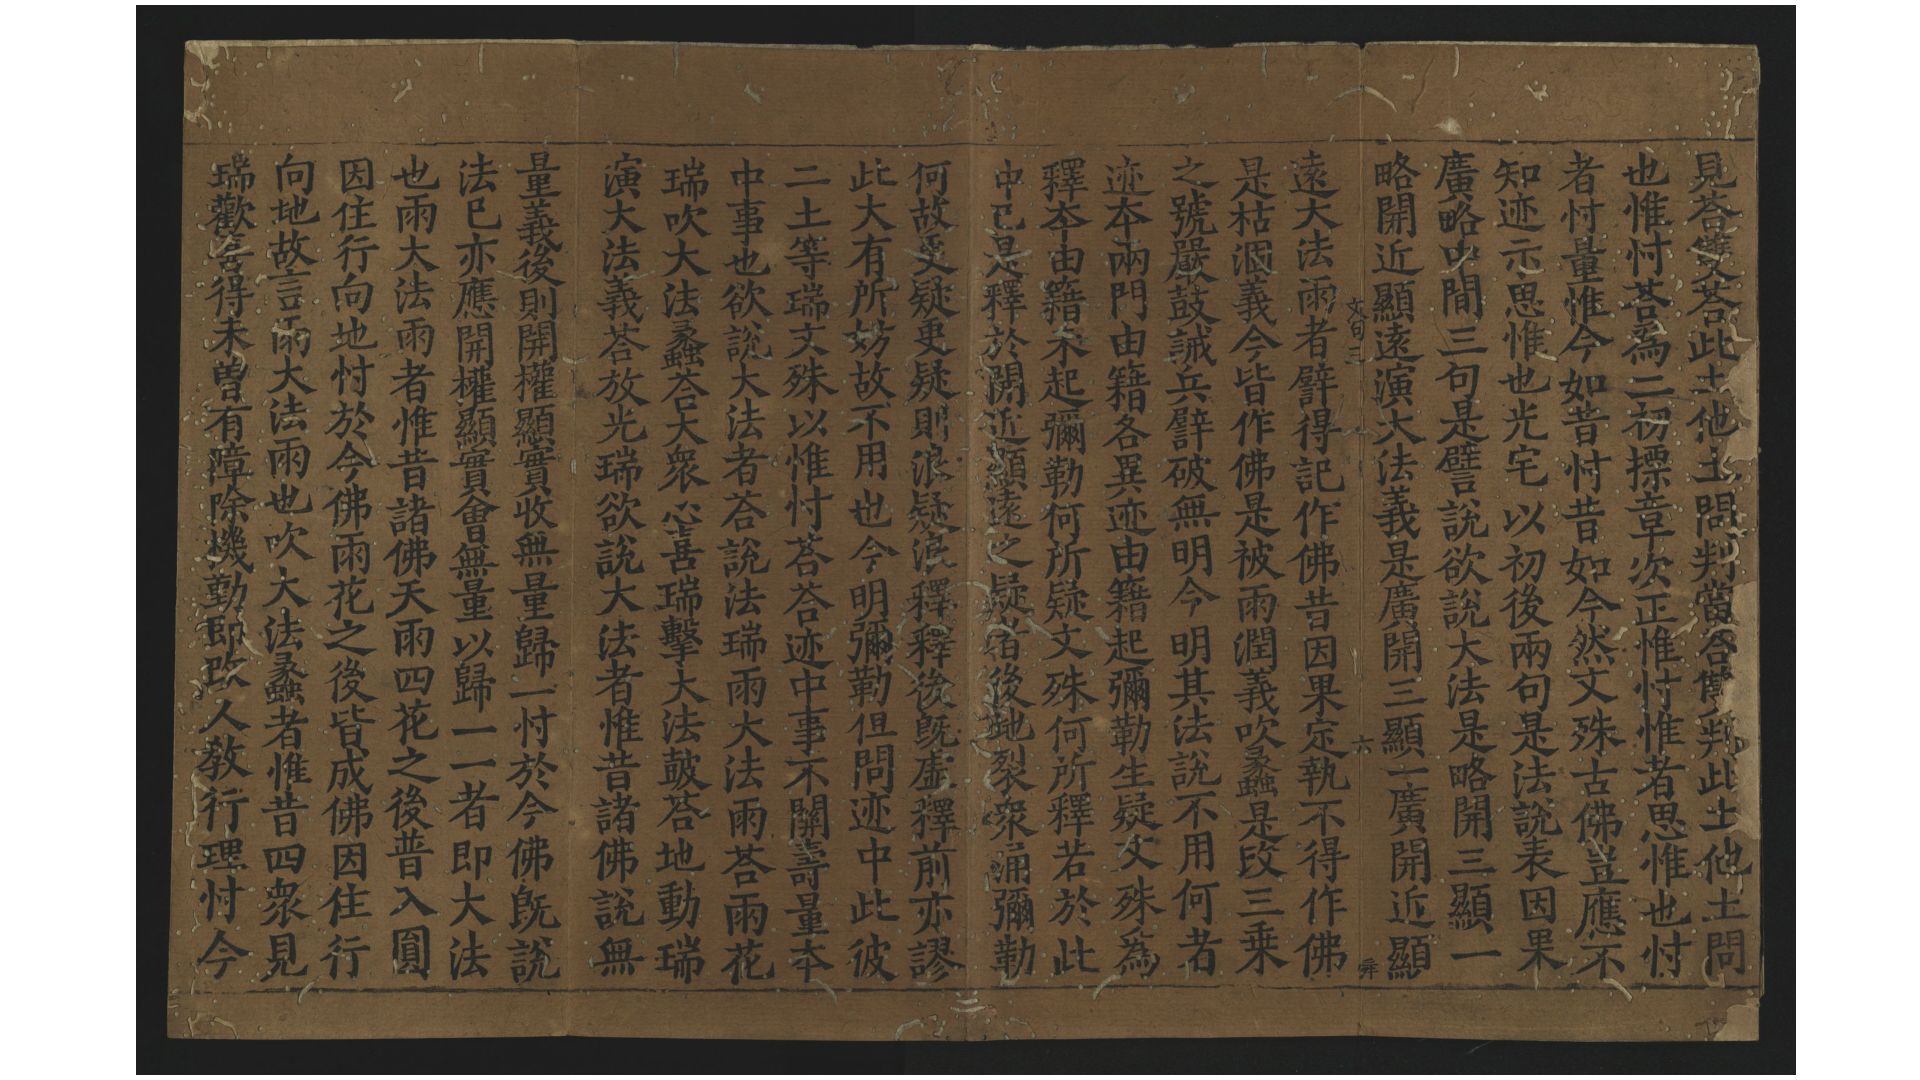 見荅雙荅此土他土問判當荅雙判此土他土問
也惟忖荅爲二初摽章次正惟忖惟者思惟也忖
者忖量惟今如昔忖昔如今然文殊古佛豈應不
知迹示思惟也光宅以初後兩句是法說表因果
廣略中間三句是譬說欲說大法是略開三顯一
略開近顯遠演大法義是廣開三顯一廣開近顯
文句三 六 舜
遠大法雨者譬得記作佛昔因果定執不得作佛
是枯涸義今皆作佛是被雨潤義吹蠡是改三乗
之號嚴鼓誡兵譬破無明今明其法說不用何者
迹夲兩門由籍各異迹由籍起彌勒生疑文殊爲
釋夲由籍未起彌勒何所疑文殊何所釋若於此
中已是釋於開近顯遠之疑者後地裂衆涌彌勒
何故更疑更疑則浪疑浪釋釋後旣虛釋前亦謬
此大有所妨故不用也今明彌勒但問迹中此彼
二土等瑞文殊以惟忖荅荅迹中事不關壽量夲
中事也欲說大法者荅說法瑞雨大法雨荅雨花
瑞吹大法蠡荅大衆心喜瑞擊大法皷荅地動瑞
演大法義荅放光瑞欲說大法者惟昔諸佛說無
量義後則開權顯實收無量歸一忖於今佛旣說
法已亦應開權顯實會無量以歸一一者即大法
也雨大法雨者惟昔諸佛天雨四花之後普入圓
因住行向地忖於今佛雨花之後皆成佛因住行
向地故言雨大法雨也吹大法蠡者惟昔四衆見
瑞歡喜得未曽有障除機動即改人教行理忖今